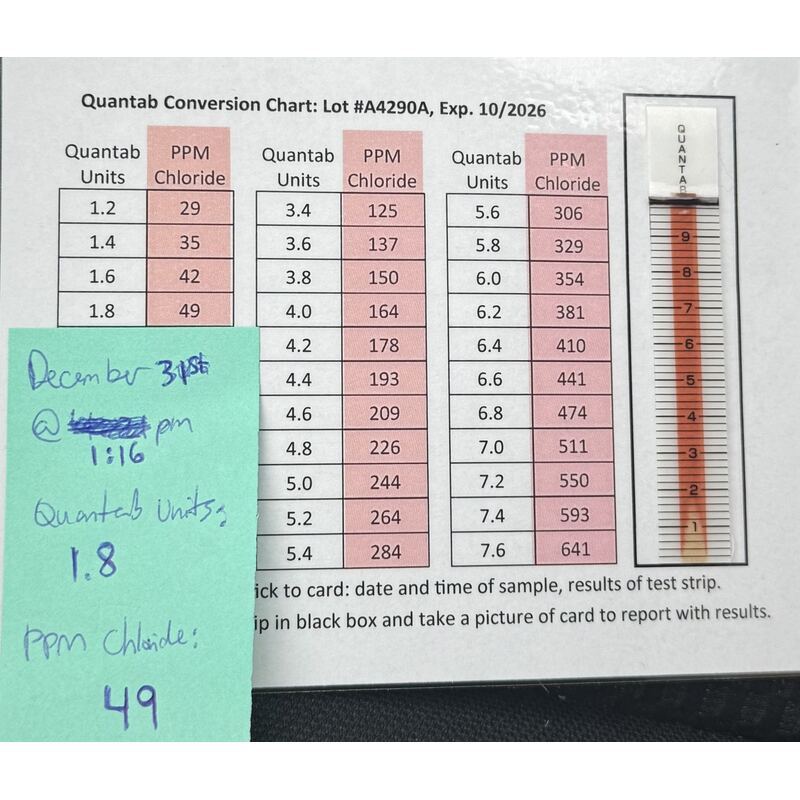 Quantab Conversion Chart: Lot #A4290A, Exp. 10/2026
Quantab Units PPM Chloride
1.2 29
1.4 35
1.6 42
1.8 49
Quantab Units PPM Chloride
3.4 125
3.6 137
3.8 150
4.0 164
4.2 178
4.4 193
4.6 209
4.8 226
5.0 244
5.2 264
5.4 284
Quantab Units PPM Chloride
5.6 306
5.8 329
6.0 354
6.2 381
6.4 410
6.6 441
6.8 474
7.0 511
7.2 550
7.4 593
7.6 641
QUANTAB
9
8
7
6
5
4
3
2
1
December 31st
@ pm
1:16
Quantab Units:
1.8
PPM Chloride:
49
ick to card: date and time of sample, results of test strip.
ip in black box and take a picture of card to report with results.